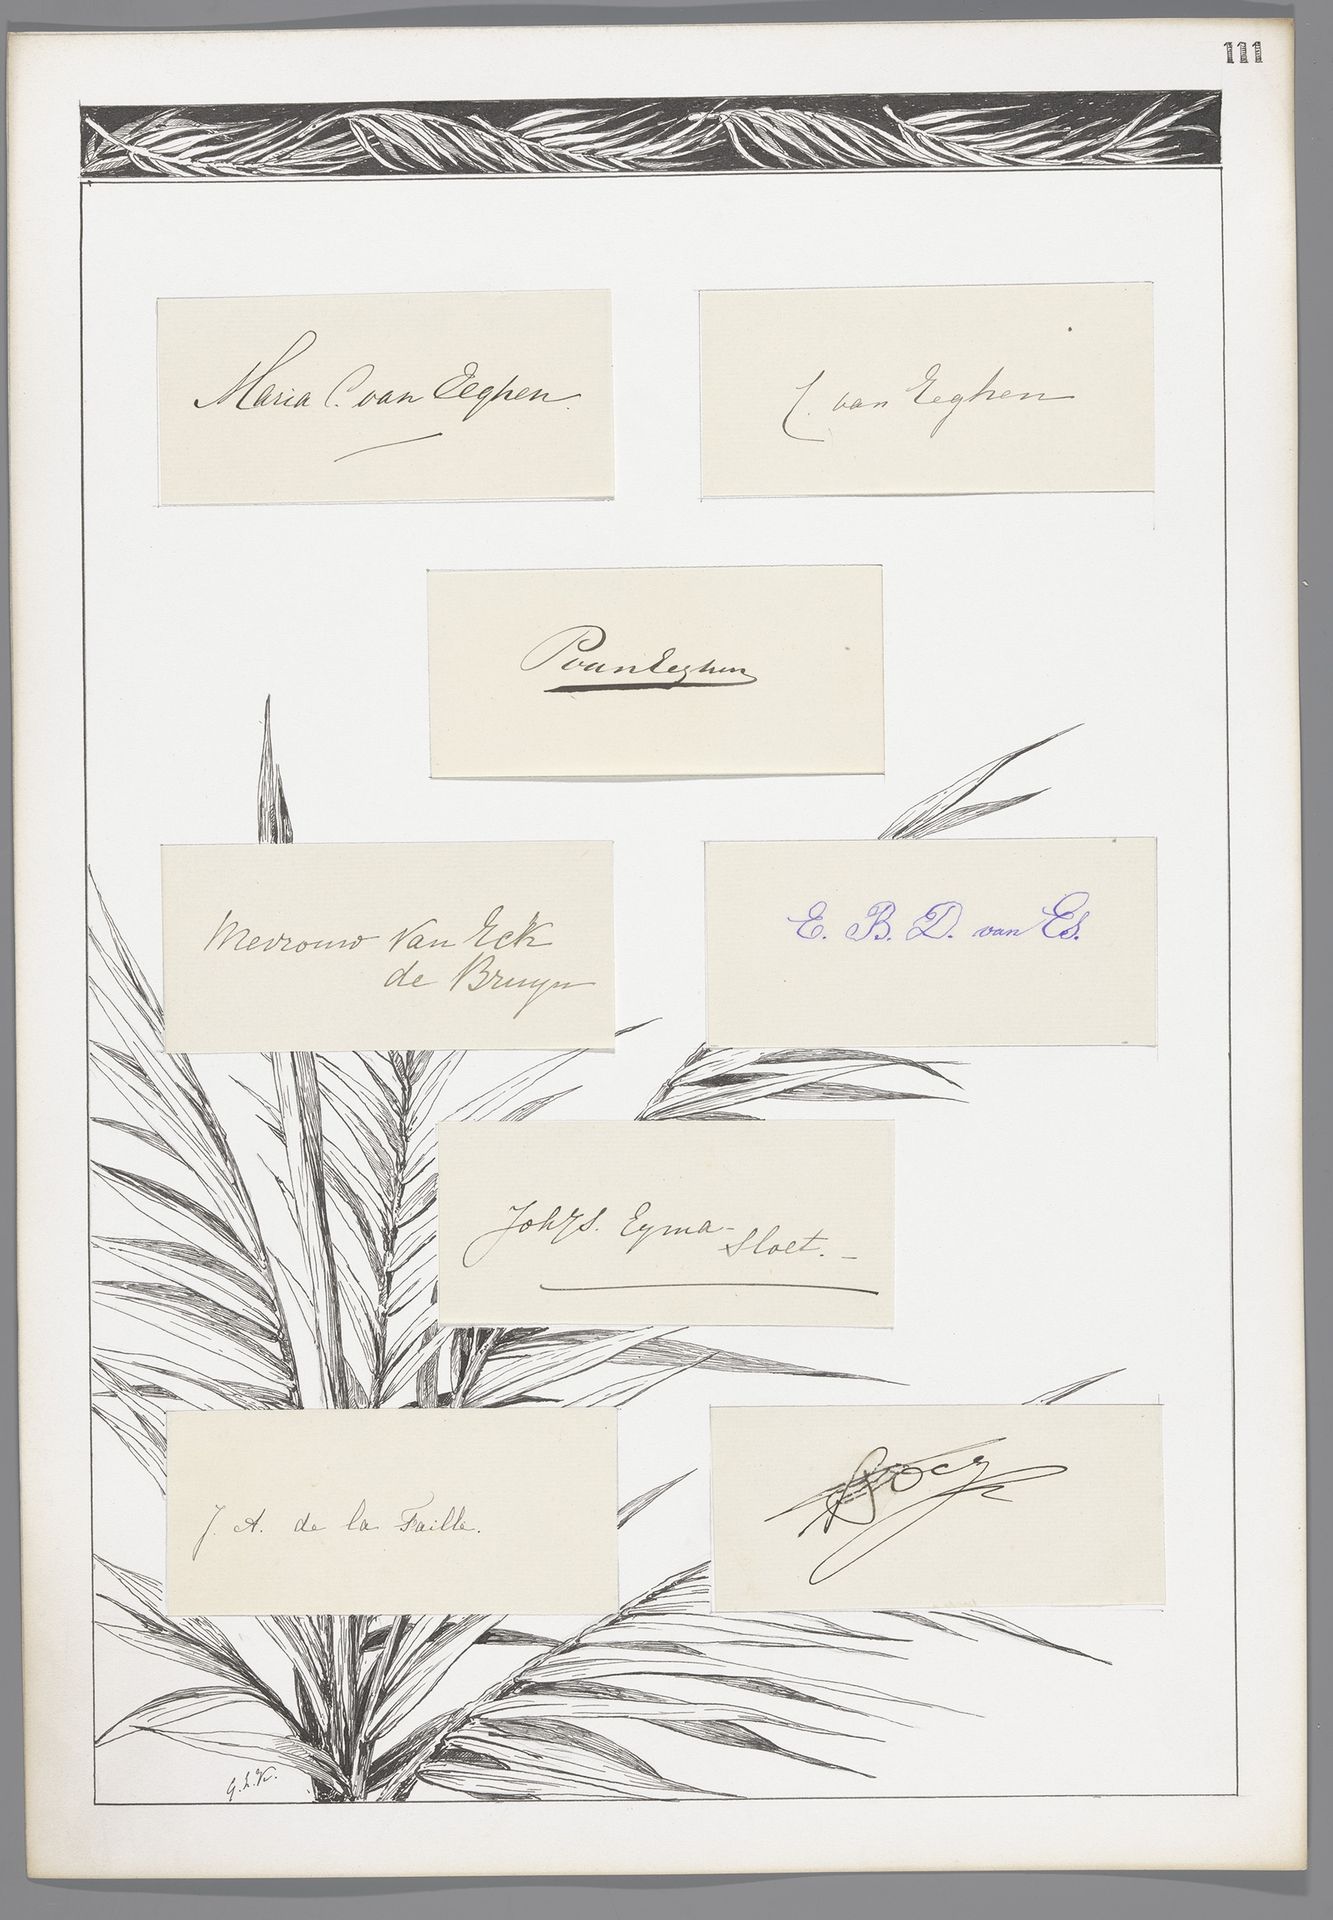 111
Maria C. van Eeghen.
C. van Eeghen
P van Eeghen
Mevrouw Van Eck
de Bruyn
E. B. D. van Es.
Eyma-
Sloet. -
J. A. de la Faille.